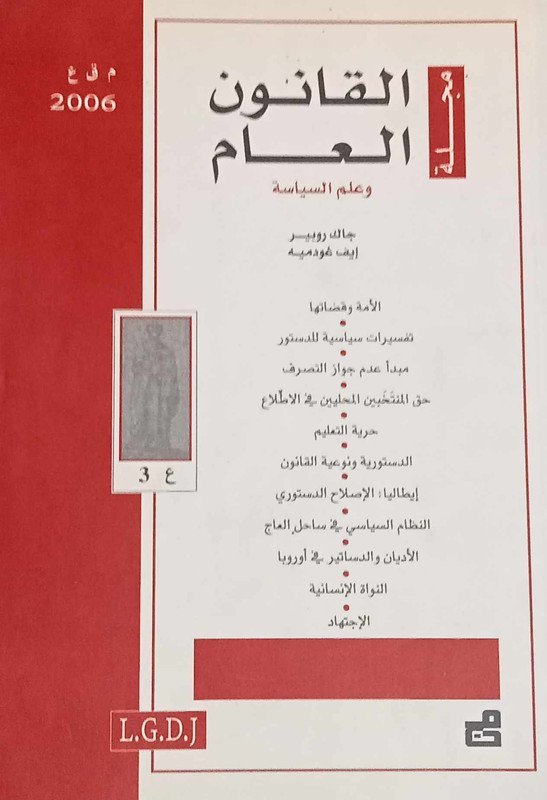 م ق ع
2006
مجلة
القانون
العام
وعلم السياسة
جاك روبير
إيف غودميه
الأمة وقضاتها
تفسيرات سياسية للدستور
مبدأ عدم جواز التصرف
حق المنتَخَبين المحليين في الاطّلاع
حرية التعليم
الدستورية ونوعية القانون
إيطاليا: الإصلاح الدستوري
النظام السياسي في ساحل العاج
الأديان والدساتير في أوروبا
النواة الإنسانية
الإجتهاد
ع 3
L.G.D.J